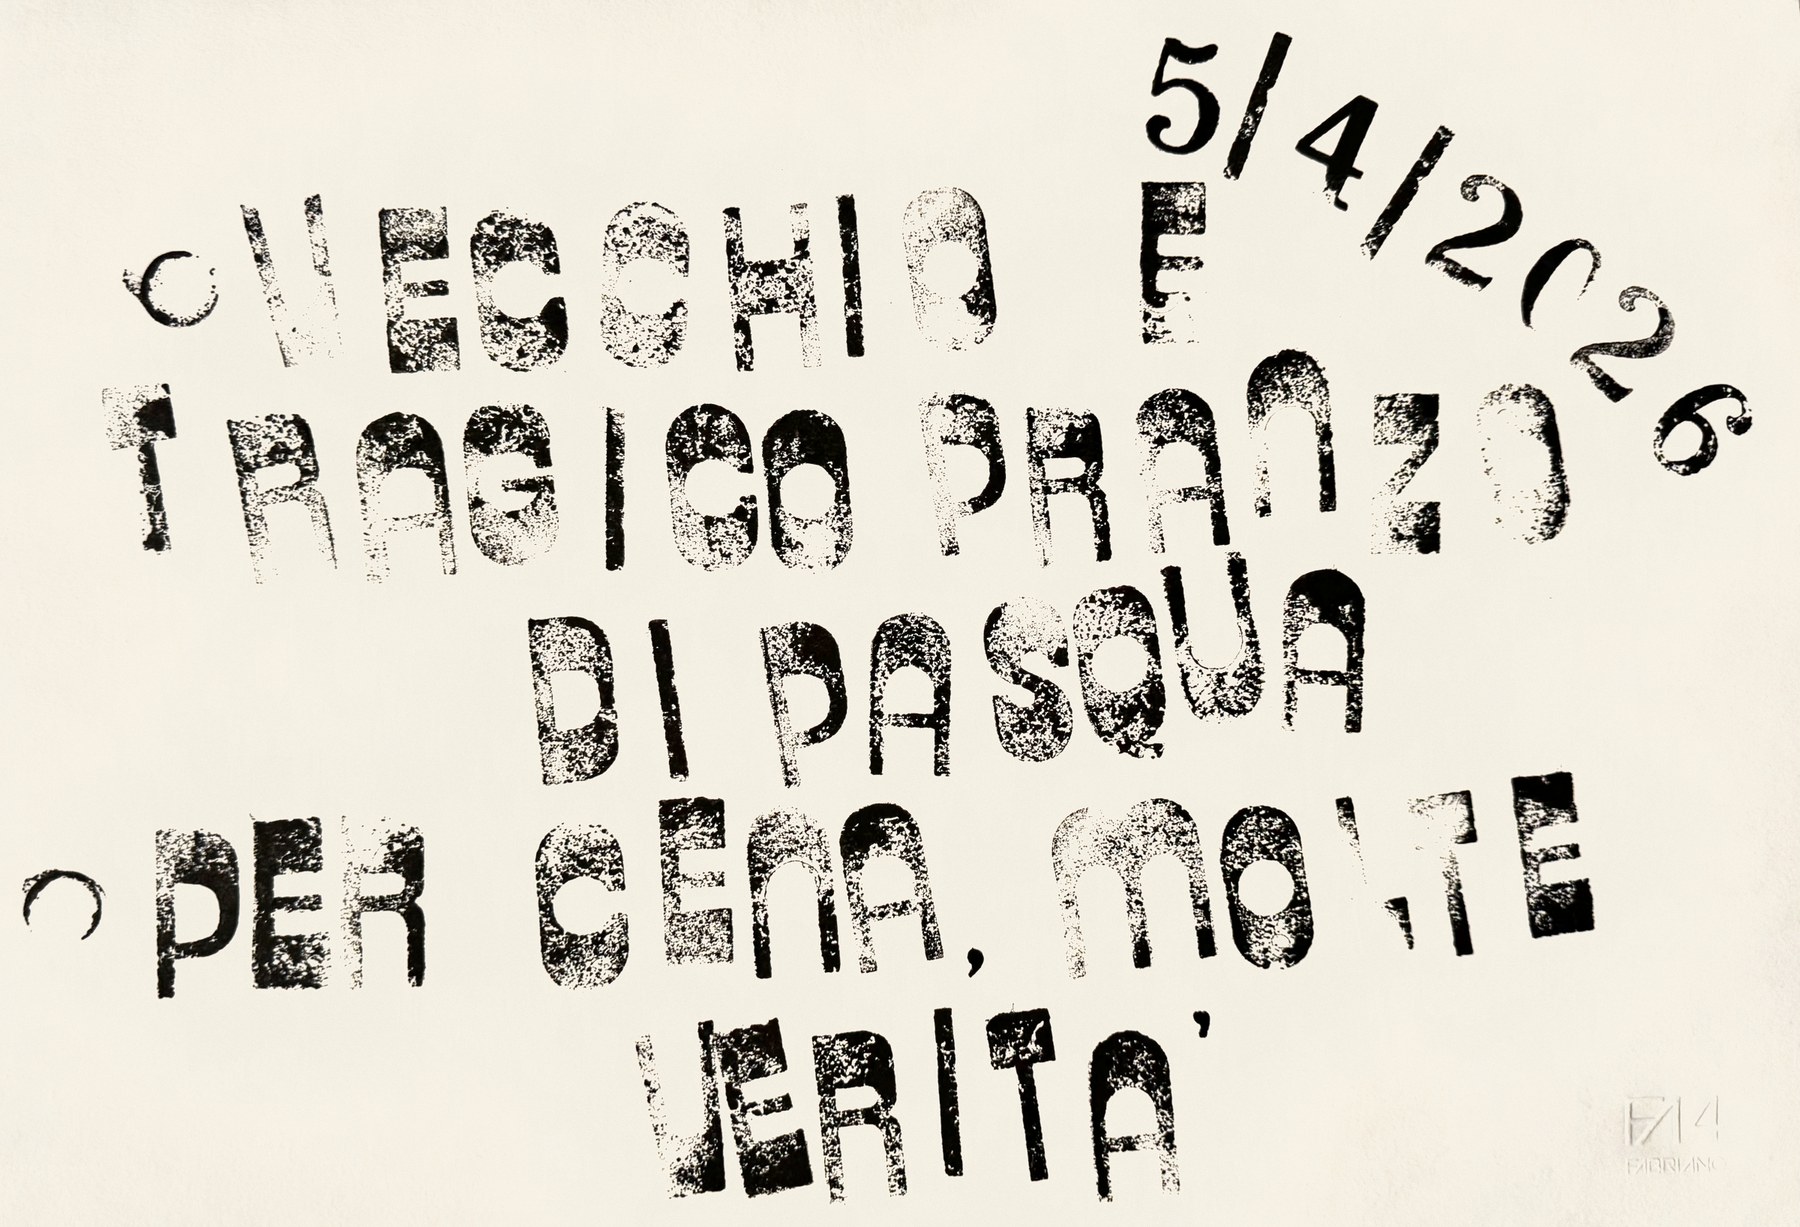 5/4/2026
VECCHIO E
TRAGICO PRANZO
DI PASQUA
PER CENA, MOLTE
VERITA'
FA 4
FABRIANO